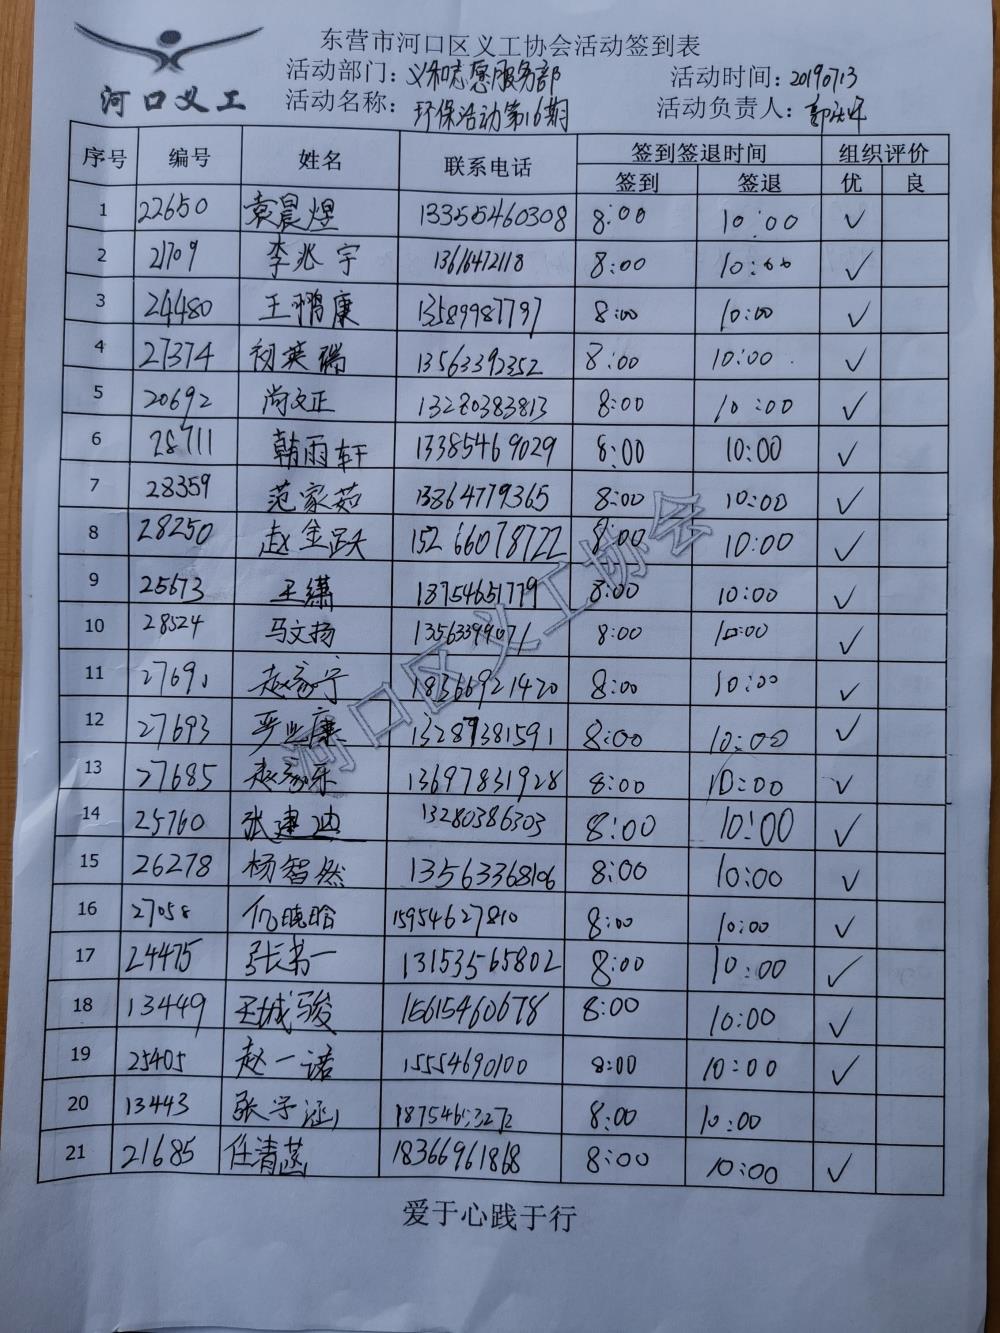 东营市河口区义工协会活动签到表
河口义工
活动部门：义和志愿服务部 活动时间：20190713
活动名称：环保活动第16期 活动负责人：
序号 编号 姓名 联系电话 签到签退时间 组织评价
签到 签退 优 良
1 22650 袁晨煜 13355460308 8:00 10:00 ✓
2 21709 李兆宇 13616472118 8:00 10:00 ✓
3 24480 王鹏康 13589987797 8:00 10:00 ✓
4 27374 初英瑞 13563392352 8:00 10:00 ✓
5 20692 尚文正 13280383813 8:00 10:00 ✓
6 28711 韩雨轩 13385469029 8:00 10:00 ✓
7 28359 范家茹 13864779365 8:00 10:00 ✓
8 28250 赵金跃 15266078722 8:00 10:00 ✓
9 25673 王潇 18754651779 8:00 10:00 ✓
10 28524 马文扬 13563399071 8:00 10:00 ✓
11 27691 赵家宁 18366921420 8:00 10:00 ✓
12 27693 严兆康 13287381591 8:00 10:00 ✓
13 27685 赵家乐 13697831928 8:00 10:00 ✓
14 25760 张建迪 13280386303 8:00 10:00 ✓
15 26278 杨智然 13563368106 8:00 10:00 ✓
16 27058 晓晗 15954627810 8:00 10:00 ✓
17 24475 张书一 13153565802 8:00 10:00 ✓
18 13449 王城骏 15615460678 8:00 10:00 ✓
19 25405 赵一诺 15554690100 8:00 10:00 ✓
20 13443 张子涵 18754653272 8:00 10:00
21 21685 任清菡 18366961868 8:00 10:00 ✓
河口区义工协会
爱于心践于行